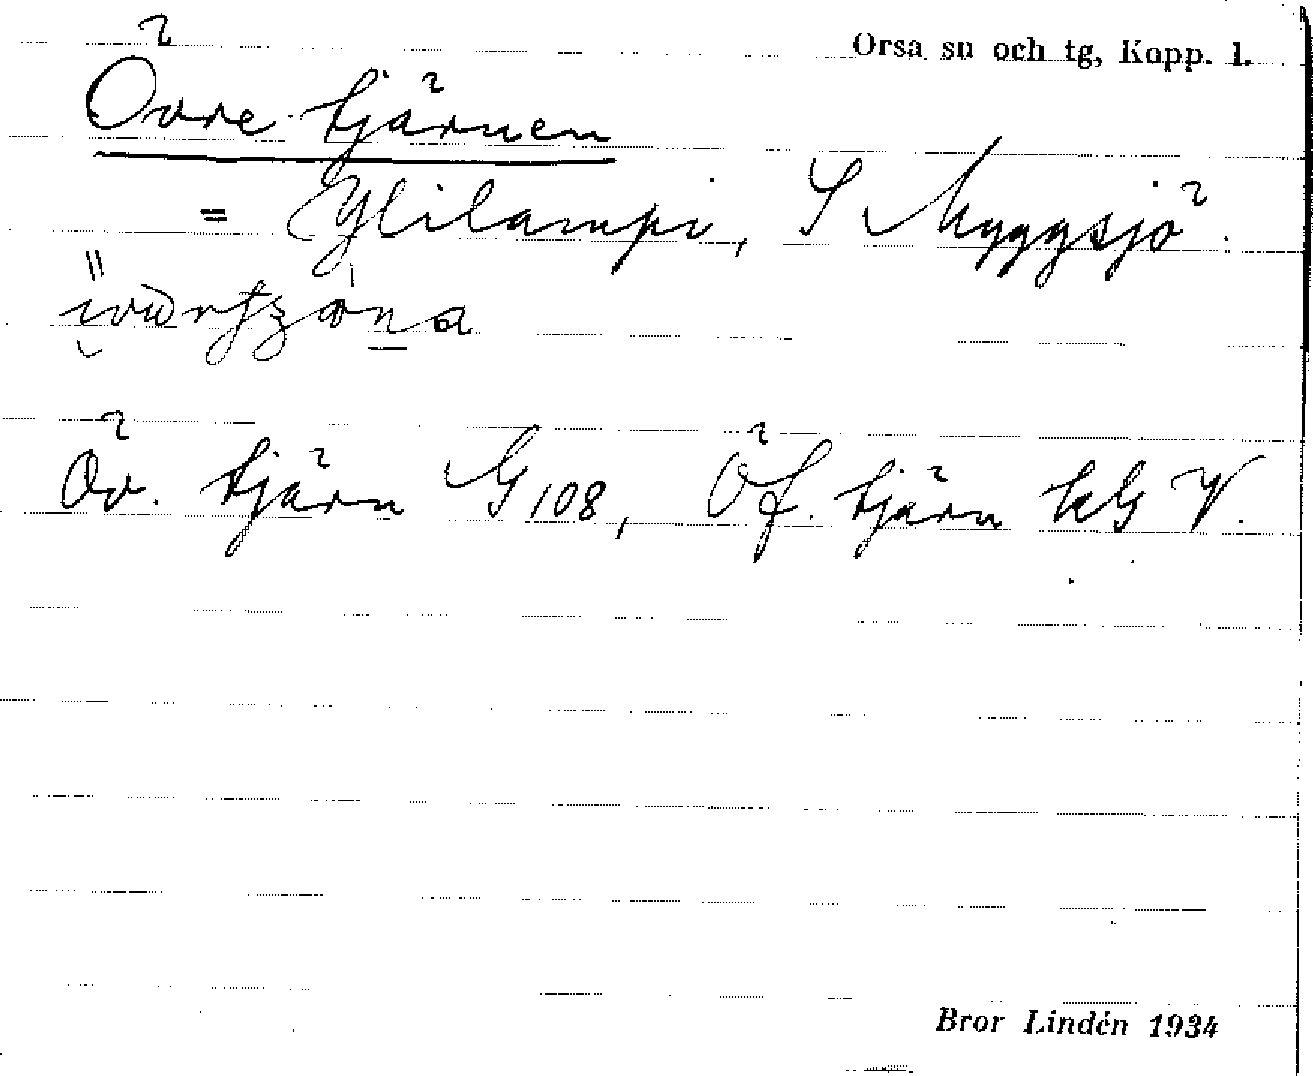 Orsa sn och tg, Kopp. l.
Övre tjärnen
= Ylilampi, S Myggsjö.
Öv. tjärn G 108, Öf. tjärn kG V.
Bror Lindén 1934